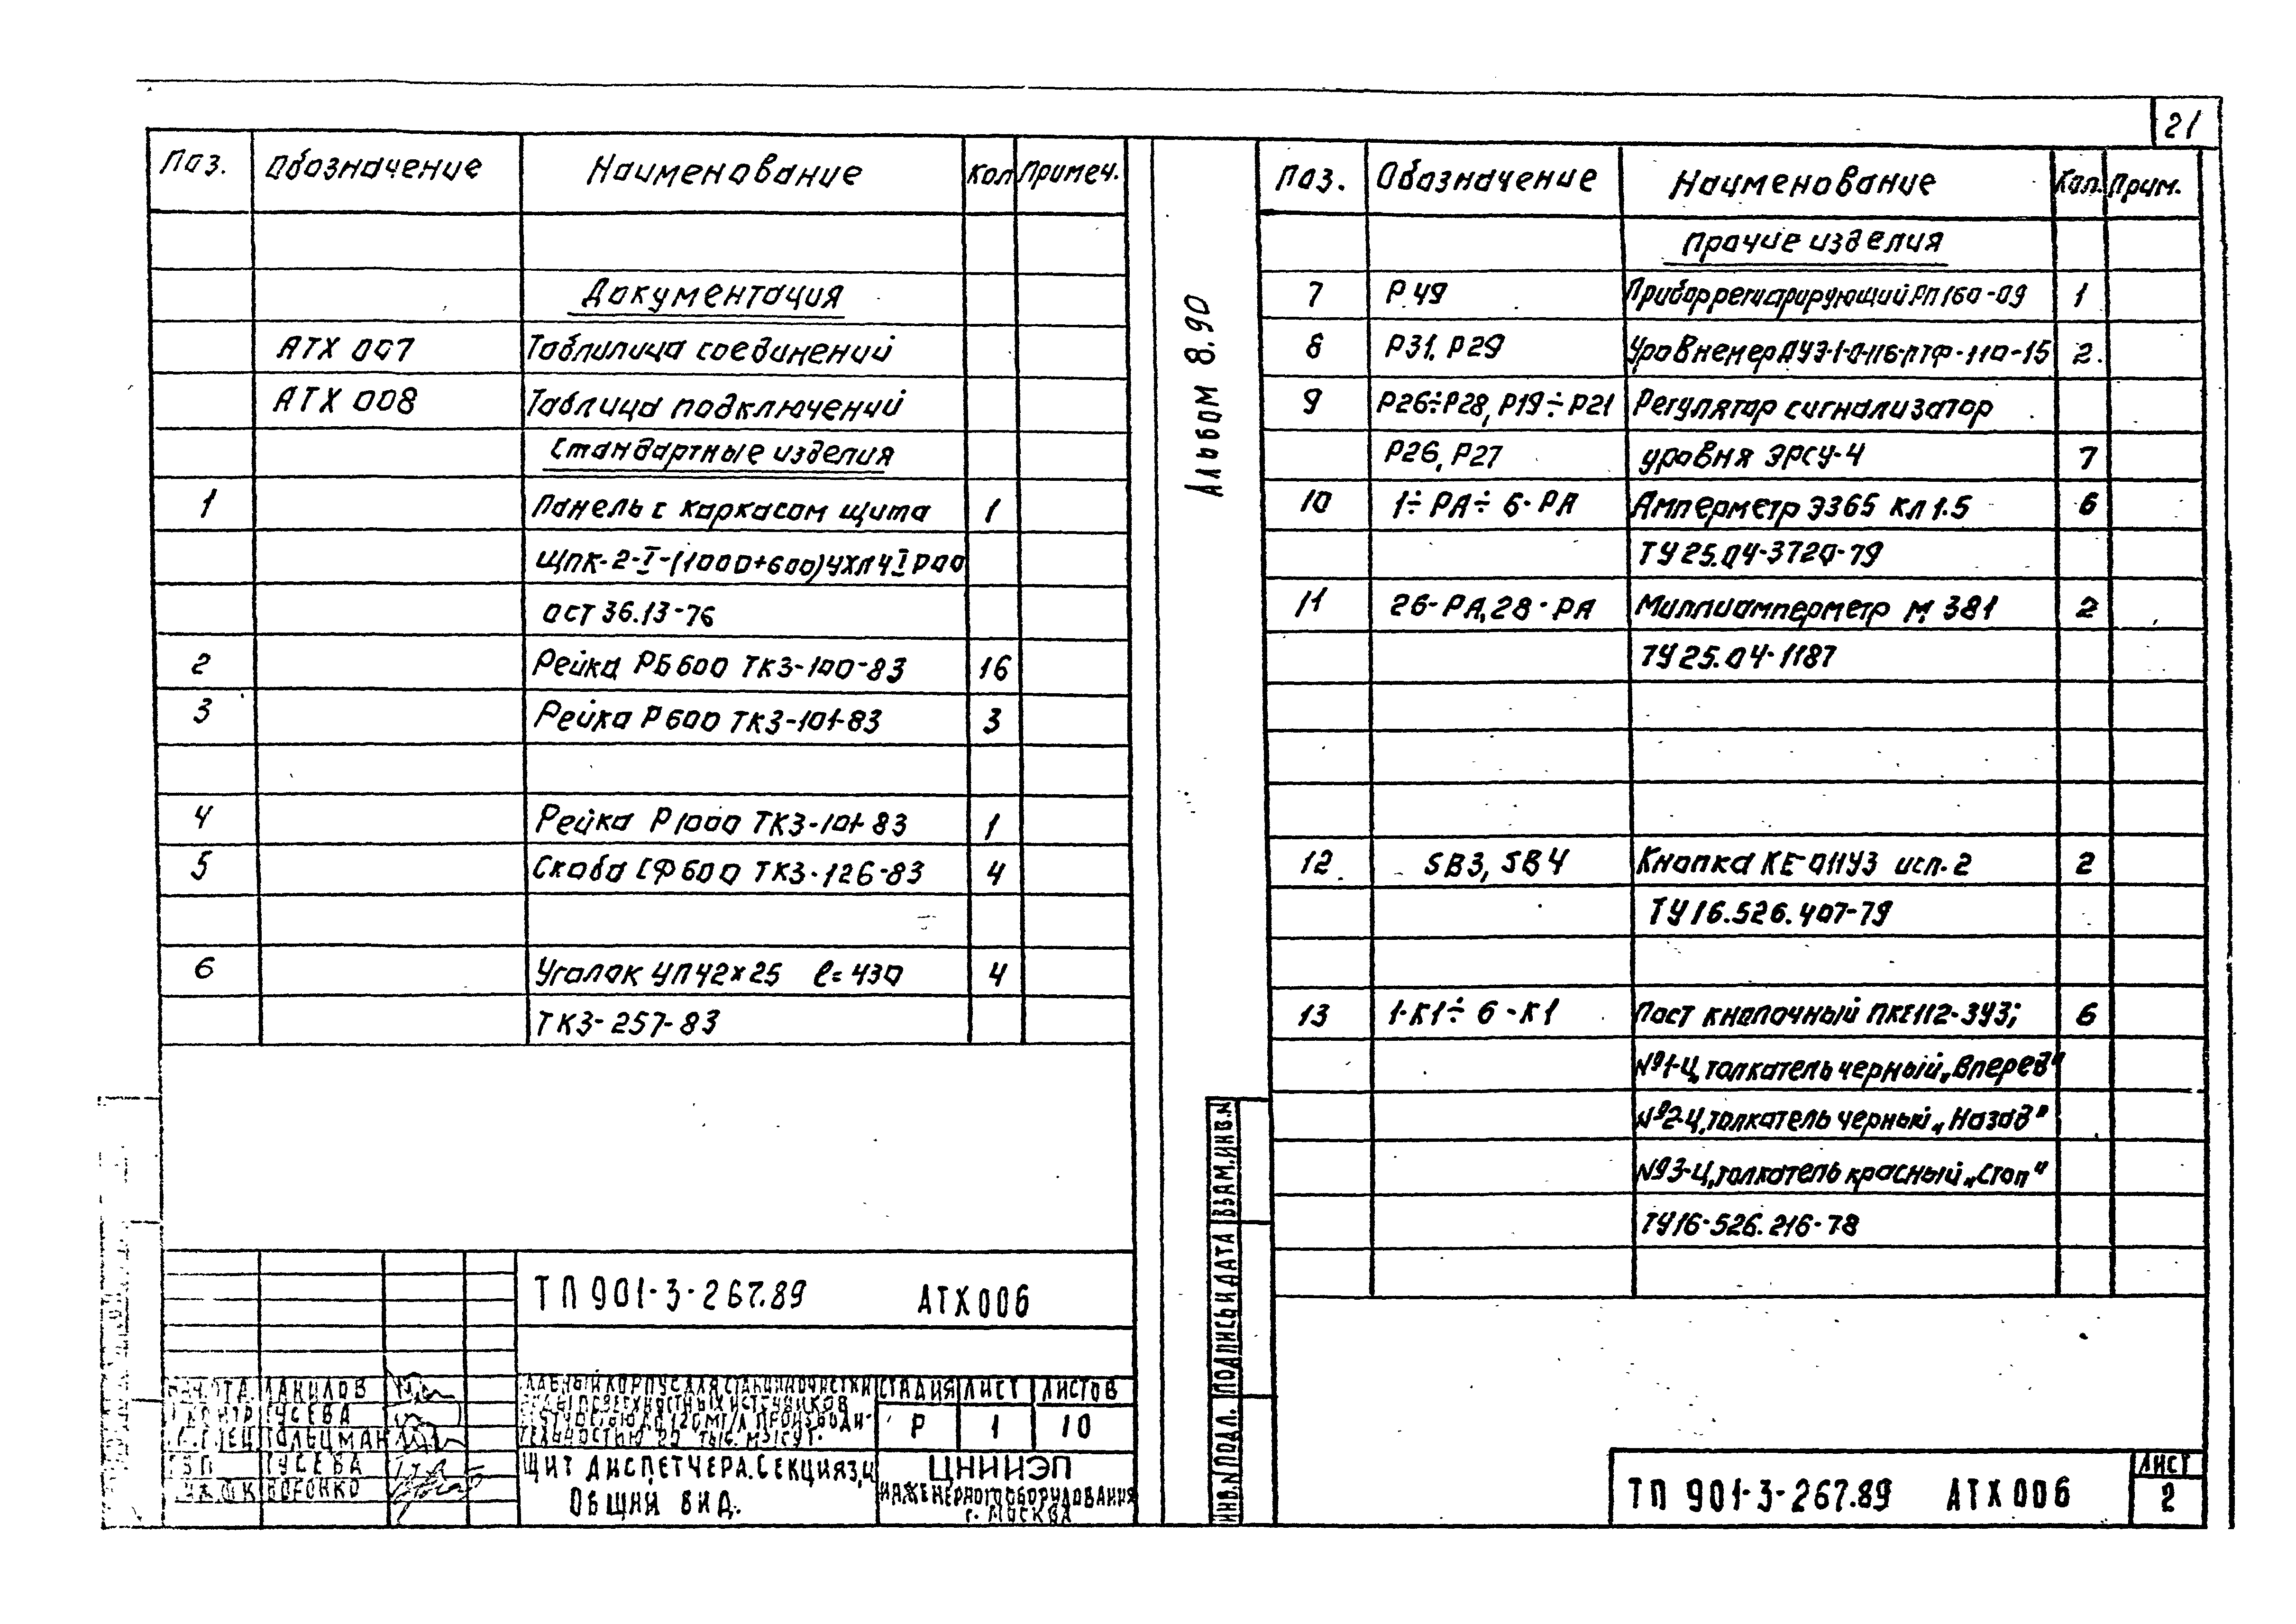 21
Поз. Обозначение Наименование Кол Примеч.
Документация
АТХ 007 Таблилица соединений
АТХ 008 Таблица подключений
Стандартные изделия
1 Панель с каркасом щита 1
ЩПК-2-I-(1000+600)УХЛ4 I Р00
ОСТ 36.13-76
2 Рейка РБ600 ТК3-100-83 16
3 Рейка Р600 ТК3-101-83 3
4 Рейка Р1000 ТК3-101-83 1
5 Скоба СФ600 ТК3-126-83 4
6 Уголок УП42х25 ℓ=430 4
ТК3-257-83
ТП 901-3-267.89 АТХ006
ДАНИЛОВ
ГУСЕВА
ГОЛЬЦМАН
ГИП ГУСЕВА
ВОРОНКО
ГЛАВНЫЙ КОРПУС ДЛЯ СТАНЦИИ ОЧИСТКИ
ВОДЫ ПОВЕРХНОСТНЫХ ИСТОЧНИКОВ
МУТНОСТЬЮ ДО 120МГ/Л ПРОИЗВОДИ-
ТЕЛЬНОСТЬЮ ТЫС. М3/СУТ.
СТАДИЯ ЛИСТ ЛИСТОВ
Р 1 10
ЩИТ ДИСПЕТЧЕРА. СЕКЦИЯ 3,4
ОБЩИЙ ВИД.
ЦНИИЭП
ИНЖЕНЕРНОГО ОБОРУДОВАНИЯ
г. МОСКВА
Альбом 8.90
ВЗАМ.ИНВ.N
ПОДПИСЬ И ДАТА
ИНВ.N ПОДЛ.
Поз. Обозначение Наименование Кол. Прим.
Прочие изделия
7 Р49 Прибор регистрирующий РП160-09 1
8 Р31, Р29 Уровнемер ДУЭ-1-0-116-ПТФ-110-15 2
9 Р26÷Р28, Р19÷Р21 Регулятор сигнализатор
Р26, Р27 уровня ЭРСУ-4 7
10 1÷РА÷6-РА Амперметр Э365 кл 1.5 6
ТУ 25.04-3720-79
11 26-РА, 28-РА Миллиамперметр М 381 2
ТУ 25.04-1187
12 SB3, SB4 Кнопка КЕ-011У3 исп. 2 2
ТУ 16.526.407-79
13 1-К1÷6-К1 Пост кнопочный ПКЕ112-3У3; 6
№1-Ц, толкатель черный „Вперед"
№2-Ц, толкатель черный „Назад"
№3-Ц, толкатель красный „Стоп"
ТУ16-526.216-78
ТП 901-3-267.89 АТХ006
ЛИСТ
2